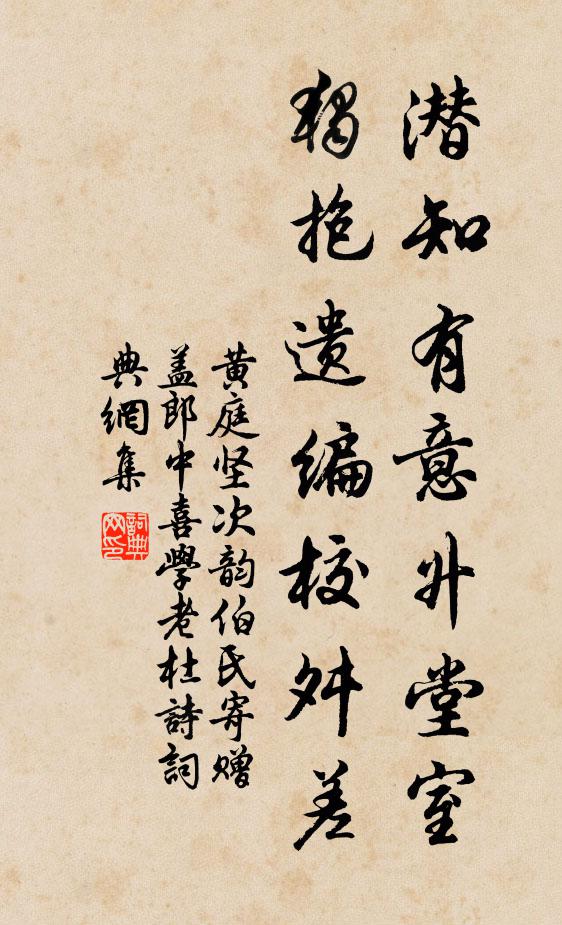 潜知有意升堂室
獨抱遗编校舛差
黄庭坚次韵伯氏寄赠
盖郎中喜學老杜詩詞
典網集
詞典
网印